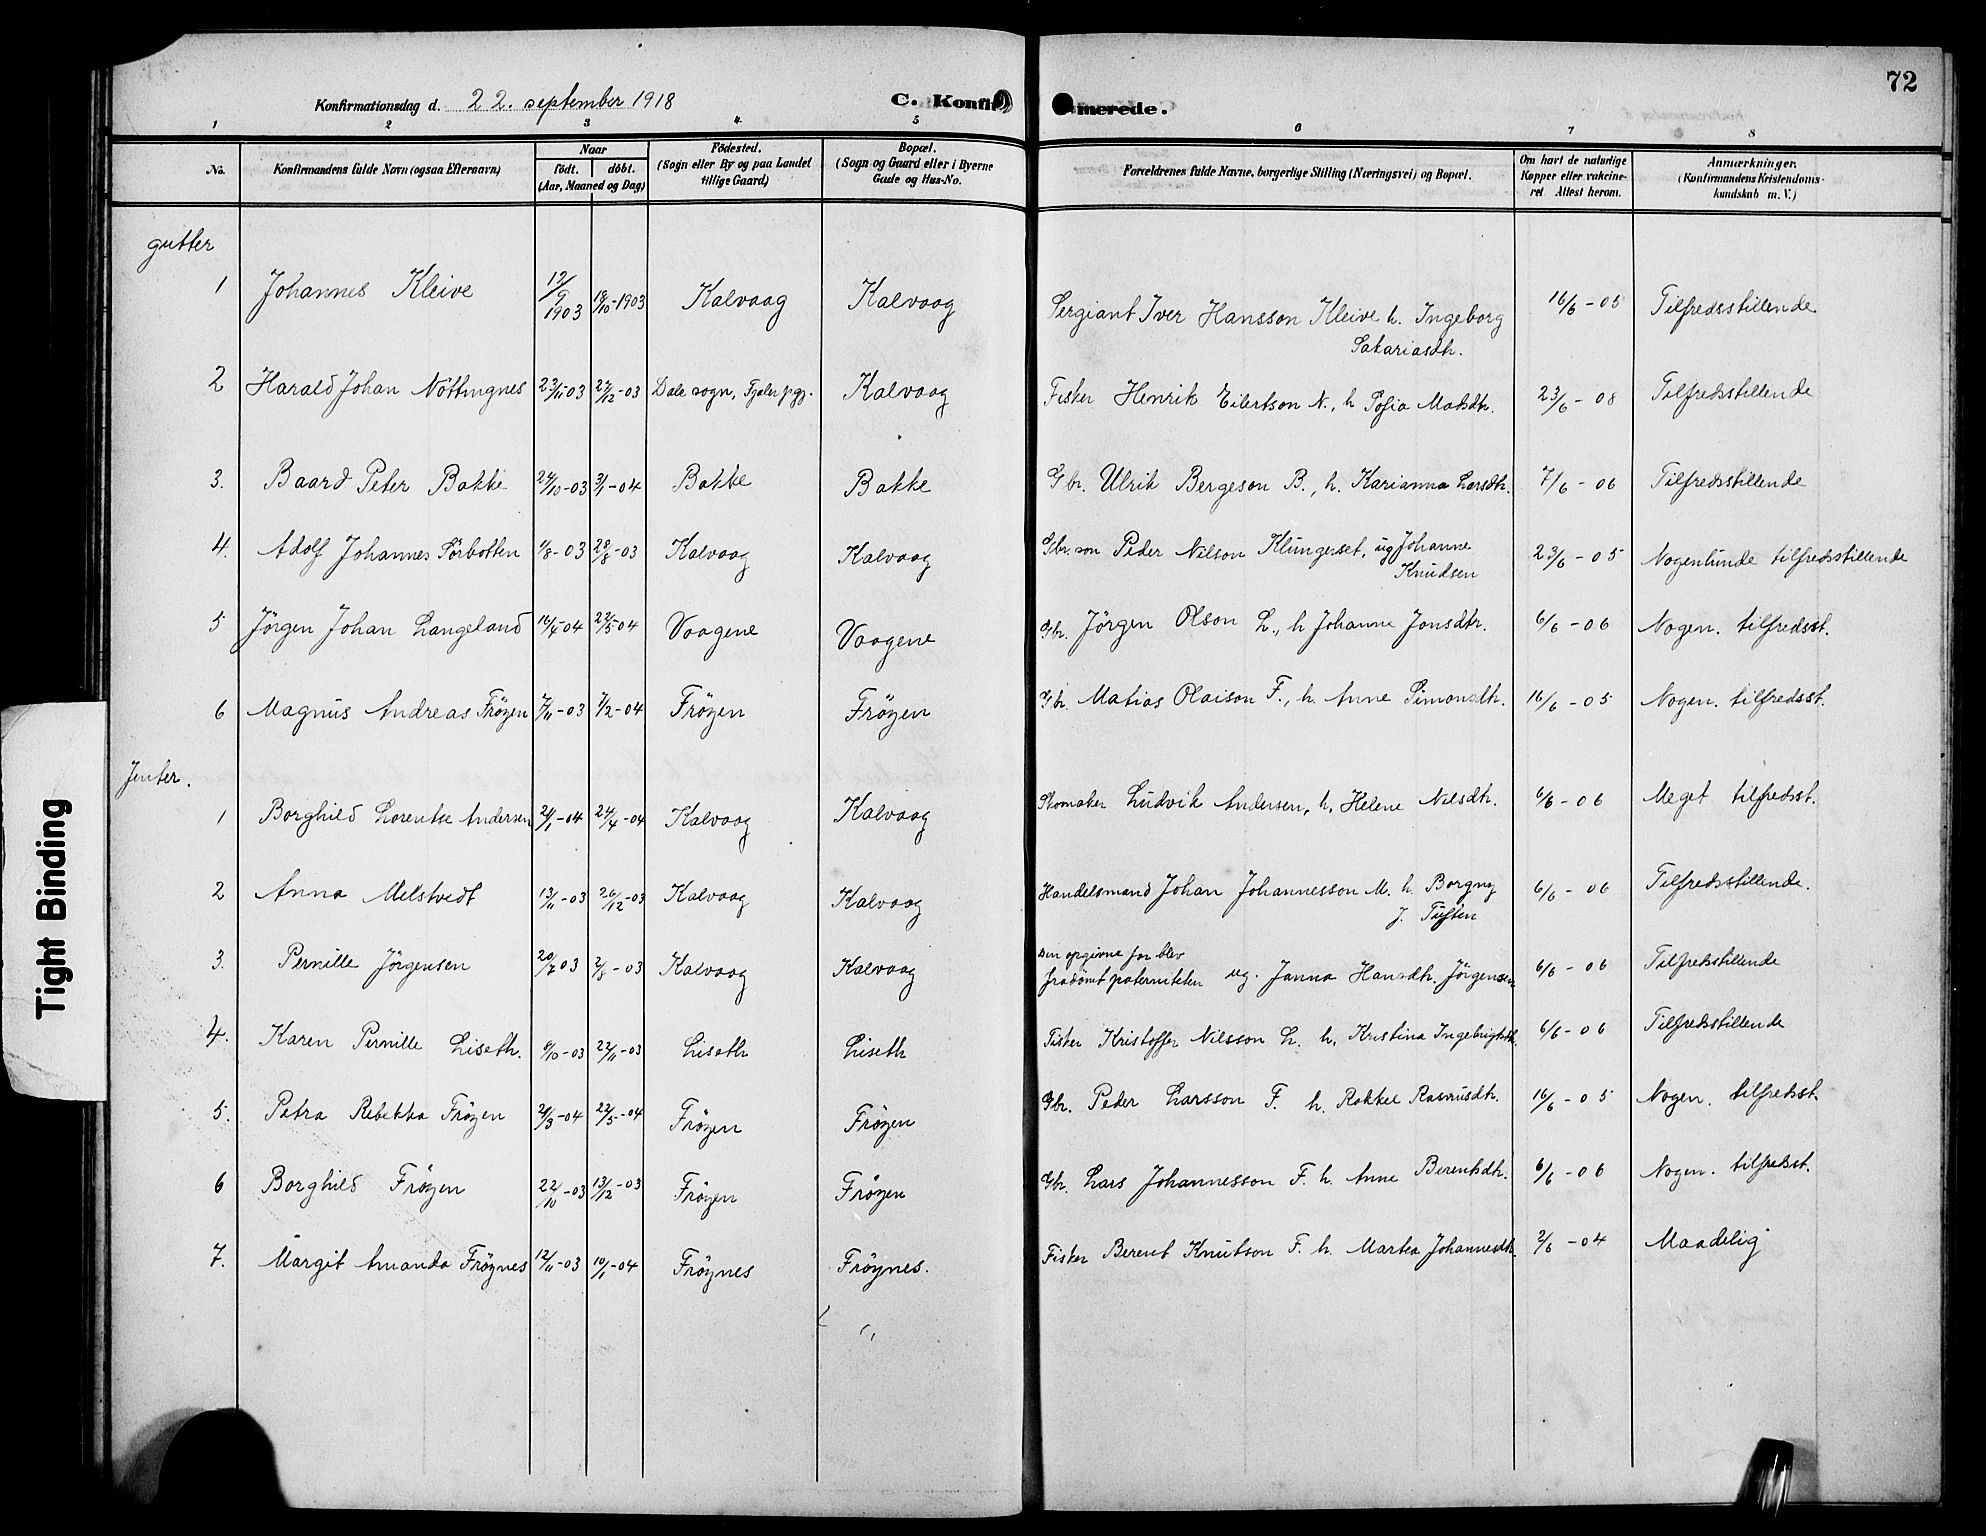 72
Konfirmationsdag d. 22. september 1918 C. Konfirmerede.
1 2 3 4 5 6 7 8
No. Konfirmandens fulde Navn (ogsaa Efternavn) Naar födt. döbt. (Aar, Maaned og Dag) Födested. (Sogn eller By og paa Landet tillige Gaard) Bopæl. (Sogn og Gaard eller i Byerne Gade og Hus-No. Forældrenes fulde Navne, borgerlige Stilling (Næringsvei) og Bopæl. Om havt de naturlige Kopper eller vakcineret Attest herom. Anmærkninger. (Konfirmandens Kristendomskundskab m. V.)
gutter
1 Johannes Kleive 12/9 1903 18/10-1903 Kalvaag Kalvaag Sergiant Iver Hansson Kleive h. Ingeborg Sakariasdh. 16/6-05 Tilfredsstillende
2 Harald Johan Nöttingnes 23/11 03 27/12-03 Dale sogn, Fjaler pgj. Kalvaag Fisker Henrik Eilertson N., h Sofia Matsdtr. 23/6-08 Tilfredsstillende
3. Baard Peter Bakke 24/10-03 3/1-04 Bakke Bakke Gbr. Ulrik Bergeson B., h. Karianna Larsdh. 7/6-06 Tilfredsstillende
4. Adolf Johannes Sörbotten 1/8-03 28/8-03 Kalvaag Kalvaag Gbr. son Peder Nilson Klungerset, ug Johanne Knudsen 23/6-05 Nogenlunde tilfredsstillende
5 Jörgen Johan Langeland 16/4-04 22/5-04 Vaagene Vaagene Gbr. Jörgen Olson L., h Johanne Jonsdtr. 6/6-06 Nogen. tilfredsst.
6 Magnus Andreas Fröyen 7/11-03 7/2-04 Fröyen Fröyen Gbr. Matias Olaison F., h. Anne Simonsdh. 16/6-05 Nogen. tilfredsst.
Jenter.
1 Borghild Lorentse Andersen 21/1-04 24/4-04 Kalvaag Kalvaag Skomaker Ludvik Andersen, h. Helene Nilsdh. 6/6-06 Meget tilfredsst.
2 Anna Melstvedt 13/11-03 26/12-03 Kalvaag Kalvaag Handelsmand Johan Johannesson M. h. Borgny J. Tuften 6/6-06 Tilfredsstillende.
3. Pernille Jörgensen 20/7 03 2/8-03 Kalvaag Kalvaag Den opgivne far blev fradömt paterniteten ug. Janna Hansdh. Jörgensen 6/6-06 Tilfredsstillende
4. Karen Pernille Liseth. 9/10-03 22/11-03 Liseth Liseth Fisker Kristoffer Nilsson L. h. Kristina Ingebrigtsdh. 6/6-06 Tilfredsstillende
5. Petra Rebekka Fröyen 21/3-04 22/5-04 Fröyen Fröyen Gbr. Peder Larsson F. h. Rakkel Rasmusdh. 16/6-05 Nogen. tilfredsst.
6 Borghild Fröyen 22/10-03 13/12-03 Fröyen Fröyen Gbr. Lars Johannesson F. h. Anne Berentsdh. 6/6-06 Nogen. tilfredsst.
7. Margit Amanda Fröynes 12/11-03 10/1-04 Fröynes Fröynes. Fisker Berent Knutson F. h. Martea Johannesdh. 2/6-04 Maadelig
Tight Binding